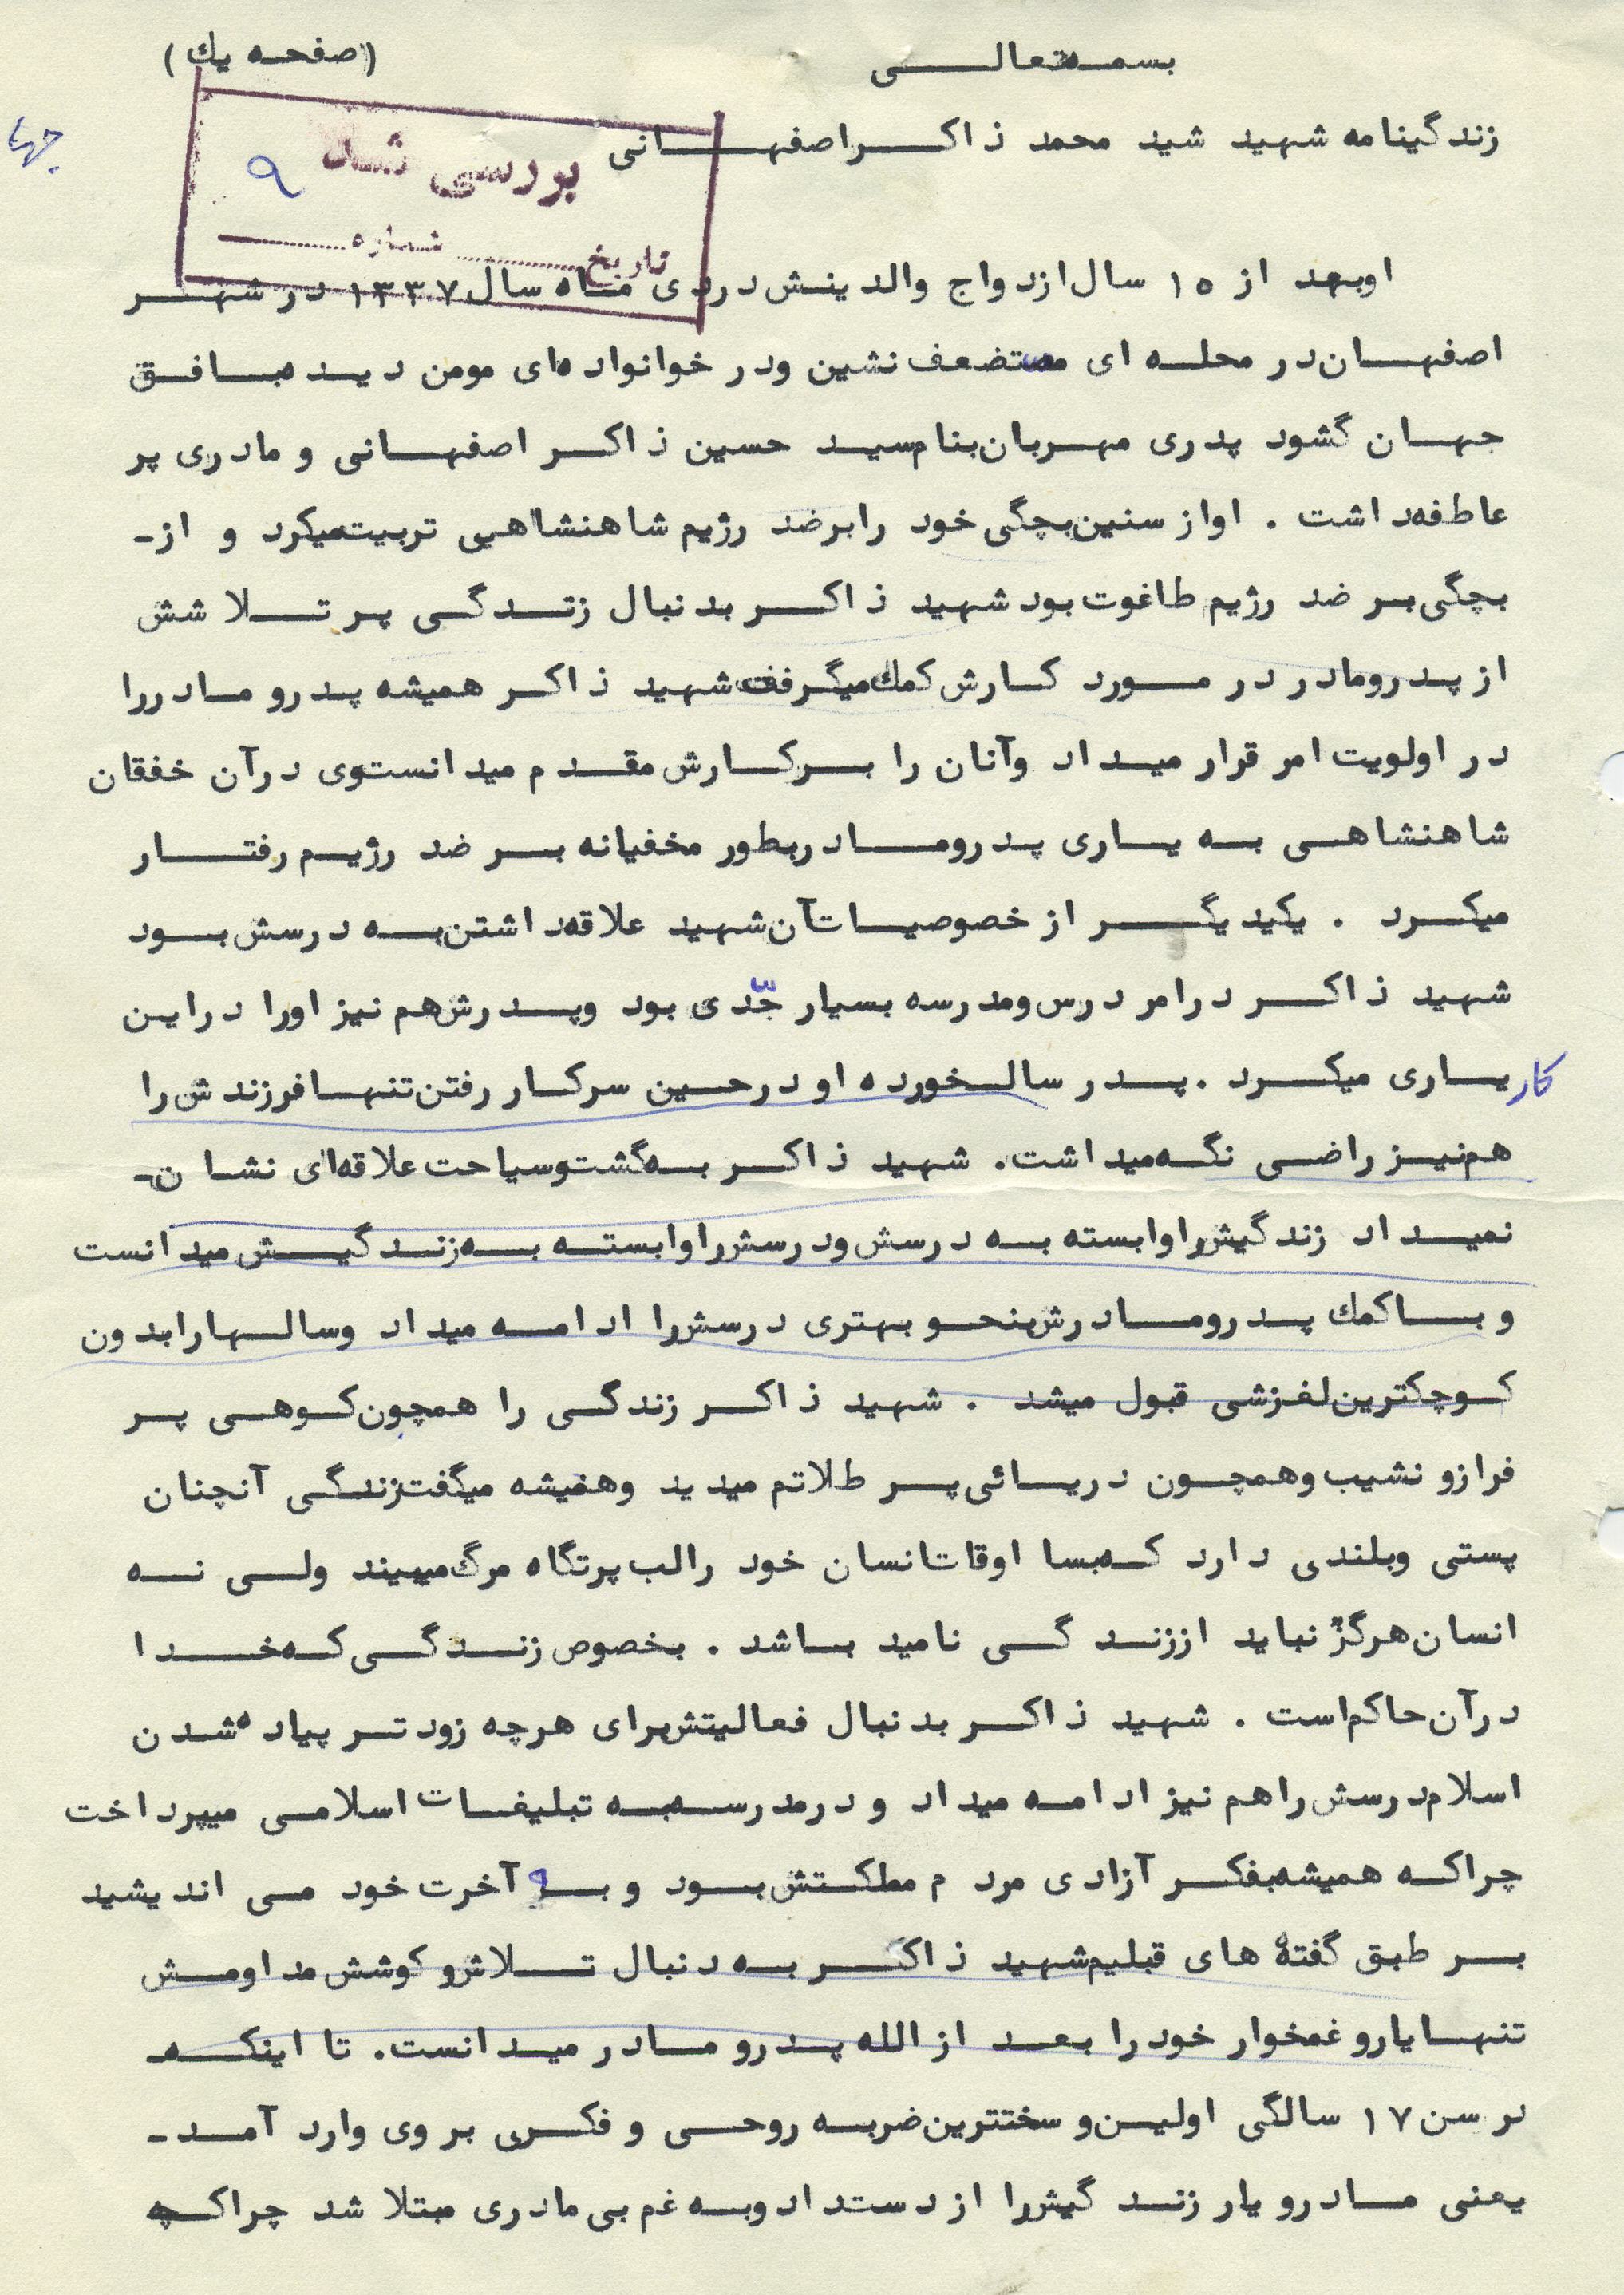 بسمه تعالی
(صفحه یك)
زندگینامه شهید شید محمد ذاکر اصفهانی
بررسی شد
۹
تاریخ شماره
جها
او بعد از ۱۵ سال ازدواج والدینش در دی ماه سال ۱۳۳۷ در شهر
اصفهان در محله ای مستضعف نشین و در خوانواده ای مومن دیده بافق
جهان گشود پدری مهربان بنام سید حسین ذاکر اصفهانی و مادری پر
عاطفه داشت . او از سنین بچگی خود را بر ضد رژیم شاهنشاهی تربیت میکرد و از-
بچگی بر ضد رژیم طاغوت بود شهید ذاکر بدنبال زتدگی پر تلا شش
از پدر و مادر در مورد کارش کمك میگرفت شهید ذاکر همیشه پدر و مادر را
در اولویت امر قرار میداد و آنان را بر کارش مقدم میدانست وی در آن خفقان
شاهنشاهی به یاری پدر و مادر بطور مخفیانه بر ضد رژیم رفتار
میکرد . یکی دیگر از خصوصیات آن شهید علاقه داشتن به درسش بود
شهید ذاکر در امر درس و مدرسه بسیار جّدی بود و پدرش هم نیز او را در این
کار یاری میکرد . پدر سالخورده او در حین سر کار رفتن تنها فرزندش را
هم نیز راضی نگه میداشت . شهید ذاکر به گشت و سیاحت علاقه ای نشا ن-
نمیداد زندگیش را وابسته به درسش و درسش را وابسته به زندگیش میدانست
و با کمك پدر و مادرش بنحو بهتری درسش را ادامه میداد و سالها را بدون
کوچکترین لغزشی قبول میشد . شهید ذاکر زندگی را همچون کوهی پر
فراز و نشیب و همچون دریائی پر طلاتم میدید و همیشه میگفت زندگی آنچنان
پستی و بلندی دارد که بسا اوقات انسان خود را لب پرتگاه مرگ میبیند ولی نه
انسان هرگز نباید از زند گی نامید باشد . بخصوص زندگی که خدا
در آن حاکم است . شهید ذاکر بدنبال فعالیتش برای هر چه زودتر پیاده شدن
اسلام درسش را هم نیز ادامه میداد و در مدرسه به تبلیغات اسلامی میپرداخت
چرا که همیشه بفکر آزادی مردم مملکتش بود و به آخرت خود می اندیشید
بر طبق گفتهٔ های قبلیم شهید ذاکر به دنبال تلاش و کوشش مداومش
تنها یار و غمخوار خود را بعد از الله پدر و مادر میدانست . تا اینکه
در سن ۱۷ سالگی اولین و سختترین ضربه روحی و فکری بر وی وارد آمد-
یعنی مادر و یار زند گیش را از دست داد و به غم بی مادری مبتلا شد چرا که